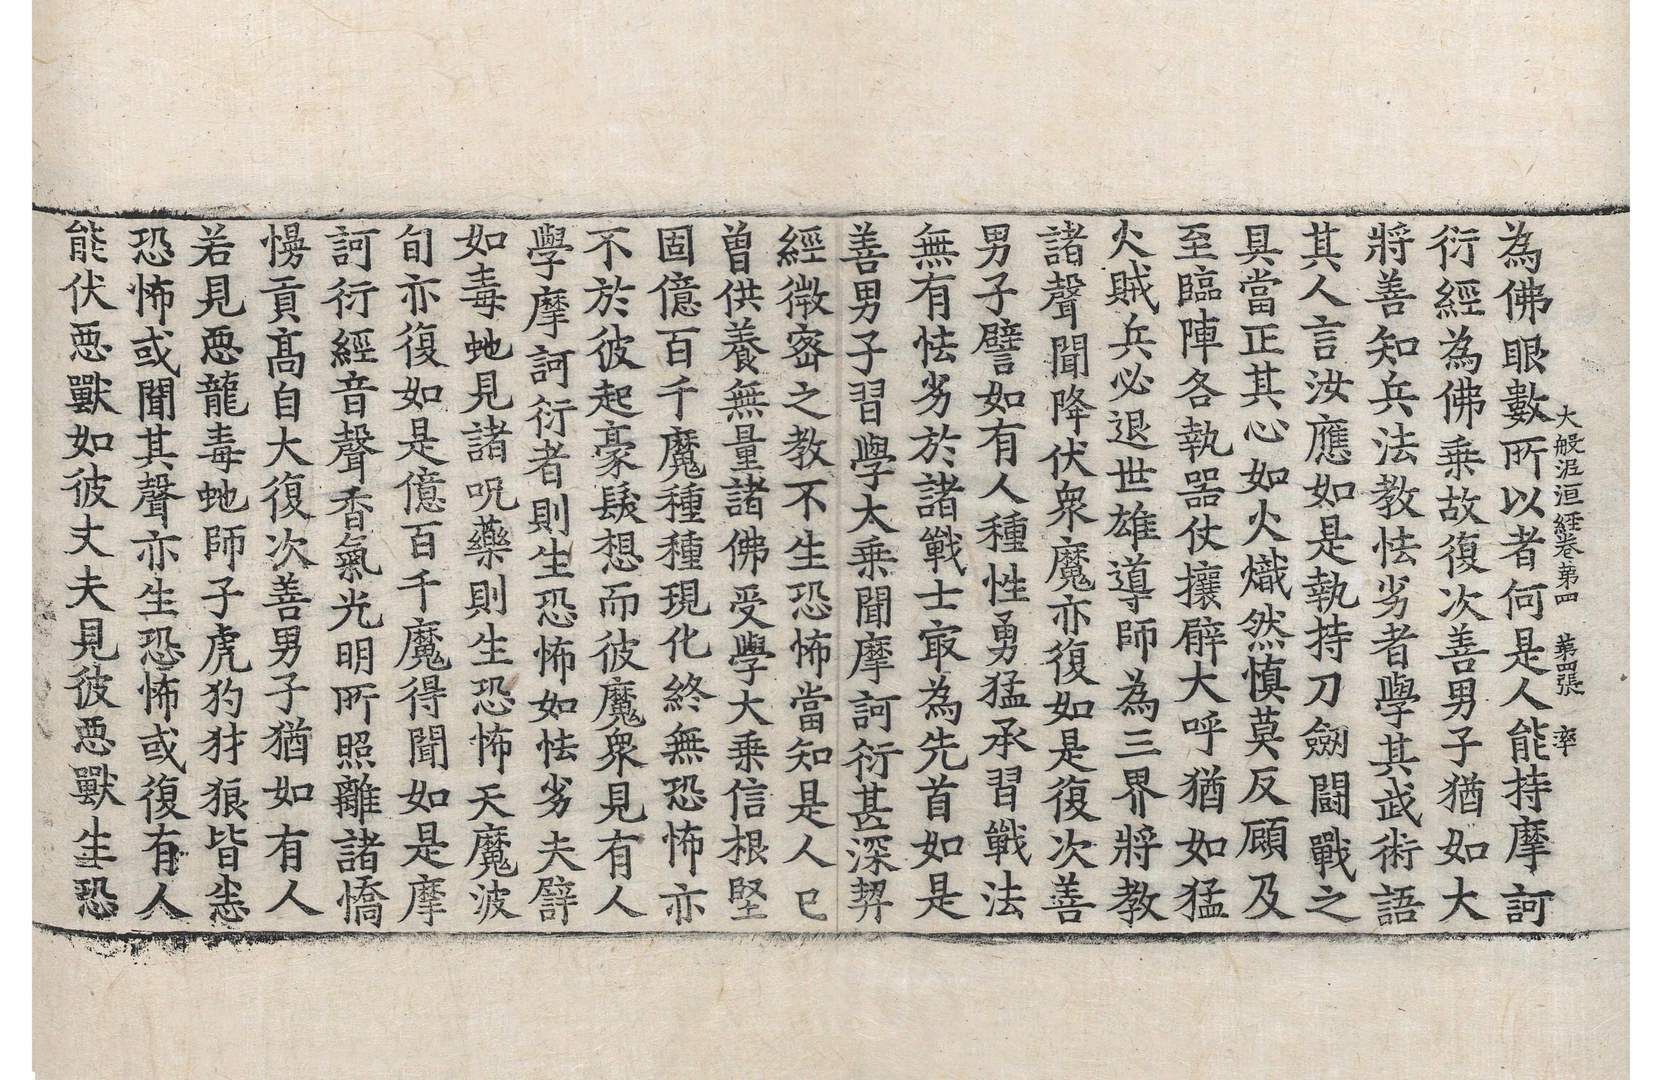 大般泥洹經卷第四 第四張 率
為佛眼數所以者何是人能持摩訶
衍經為佛乗故復次善男子猶如大
將善知兵法教怯劣者學其武術語
其人言汝應如是執持刀劒鬪戰之
具當正其心如火熾然慎莫反顧及
至臨陣各執器仗攘臂大呼猶如猛
火賊兵必退世雄導師為三界將教
諸聲聞降伏衆魔亦復如是復次善
男子譬如有人種性勇猛承習戰法
無有怯劣於諸戰士㝡為先首如是
善男子習學大乗聞摩訶衍甚深契
經微密之教不生恐怖當知是人已
曽供養無量諸佛受學大乗信根堅
固億百千魔種種現化終無恐怖亦
不於彼起豪髮想而彼魔衆見有人
學摩訶衍者則生恐怖如怯劣夫譬
如毒虵見諸呪藥則生恐怖天魔波
旬亦復如是億百千魔得聞如是摩
訶衍經音聲香氣光明所照離諸憍
慢貢髙自大復次善男子猶如有人
若見惡龍毒虵師子虎犳犲狼皆恚
恐怖或聞其聲亦生恐怖或復有人
能伏惡獸如彼丈夫見彼惡獸生恐